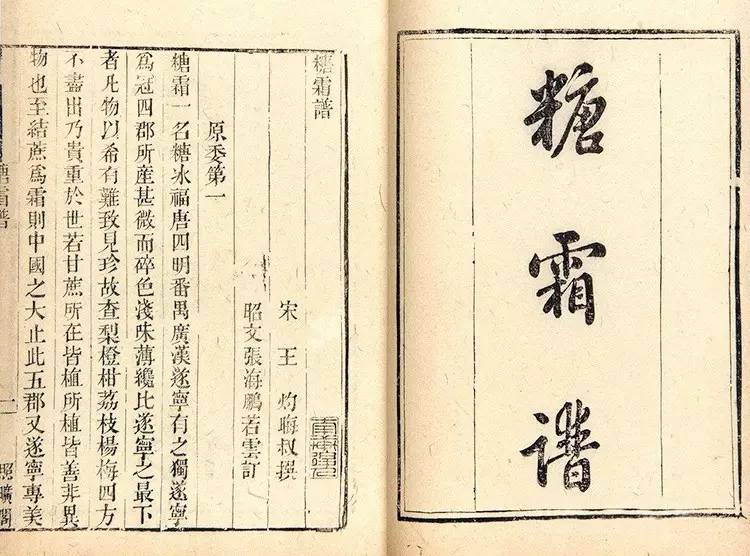 糖霜譜
糖霜譜
宋 王 灼晦叔撰
昭文張海鵬若雲訂
原委第一
糖霜一名糖冰福唐四明番禺廣漢遂寧有之獨遂寧
為冠四郡所産甚微而碎色淺味薄纔比遂寧之最下
者凡物以希有難致見珍故查梨橙柑荔枝楊梅四方
不盡出乃貴重於世若甘蔗所在皆植所植皆善非異
物也至結蔗為霜則中國之大止此五郡又遂寧專美
糖霜譜
一
照曠閣